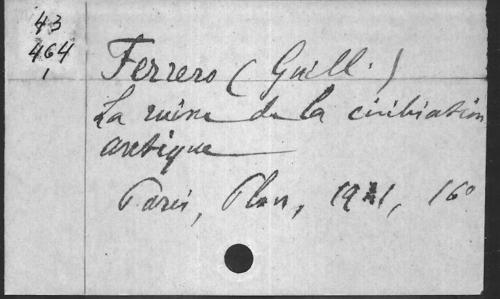 43
464
1
Ferrero (Guill.)
La ruine de la civilisation
antique
Paris, Plon, 1921, 16°